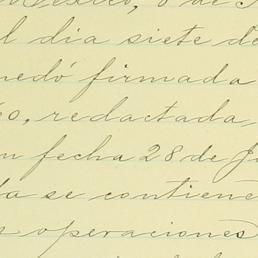 l dia siete de
nedó firmada
os, redactada,
n fecha 28 de Ju
da se contiene
s operaciones